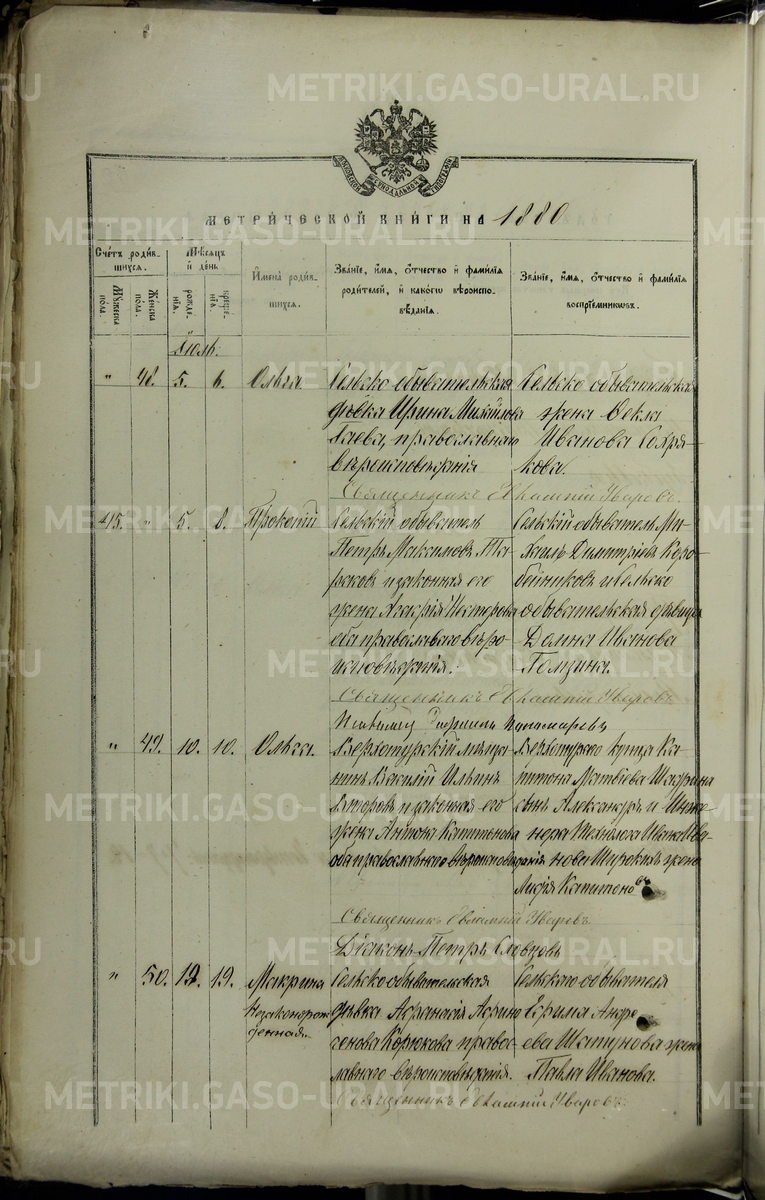 METRIKI.GASO-URAL.RU
МЕТРИ́ЧЕСКОЙ КНИ́ГИ НА 1880
Сче́тъ роди́в-
шихся.
Му́жеска
пола.
Же́нска
пола.
Мѣ́сяцъ
и́ де́нь
рожде-
нія.
креще-
нія.
И́мена̀ роди́в-
шихся.
Зва́ніе, и́мя, о́тчество и́ фами́лія
роди́телей, и́ како́гѡ вѣроиспо-
вѣ́данія.
Зва́ніе, и́мя, о́тчество и́ фами́лія
воспріе́мниковъ.
Іюль.
" 48. 5. 6. Ольга
Сельско обывательская
дѣвка Ирина Михайлова
Гаева, православнаго
вѣроисповѣданія
Сельско обывательская
жена Ѳекла
Иванова
кова.
Священникъ Евлампій Уваровъ.
45. " 5. 8. Прокопій
Сельскій обыватель
Петръ Максимовъ Та-
раковъ и законная его
жена Нестерова
оба православнаго вѣро-
исповѣданія.
Сельскій обыватель Ми-
хаилъ Димитріевъ Коро-
бейниковъ и сельско
обывательская дѣвица
Домна Иванова
Голзина.
Священникъ Евлампій Уваровъ
Псаломщ. Пономаревъ
" 49. 10. 10. Ольга.
Верхотурскій мѣща-
нинъ Василій Ильинъ
Второвъ и законная его
жена Антона Капитонова
оба православнаго вѣроисповѣданія
Верхотурскаго купца Ка-
питона Матвѣева
сынъ Александръ и Инже-
нера Технолога Ивана Ива-
нова Широкихъ жена
Лидія Капитонов
Священникъ Евлампій Уваровъ
Діаконъ Петръ Словцовъ
" 50. 19. 19. Макрина
Незаконорож-
денная.
Сельско обывательская
дѣвка Афанасія Афино-
генова Корюкова правос-
лавнаго вѣроисповѣданія.
Сельскаго обывателя
Ефима Андре-
ева Шатунова жена
Павла Иванова.
Священникъ Евлампій Уваровъ.